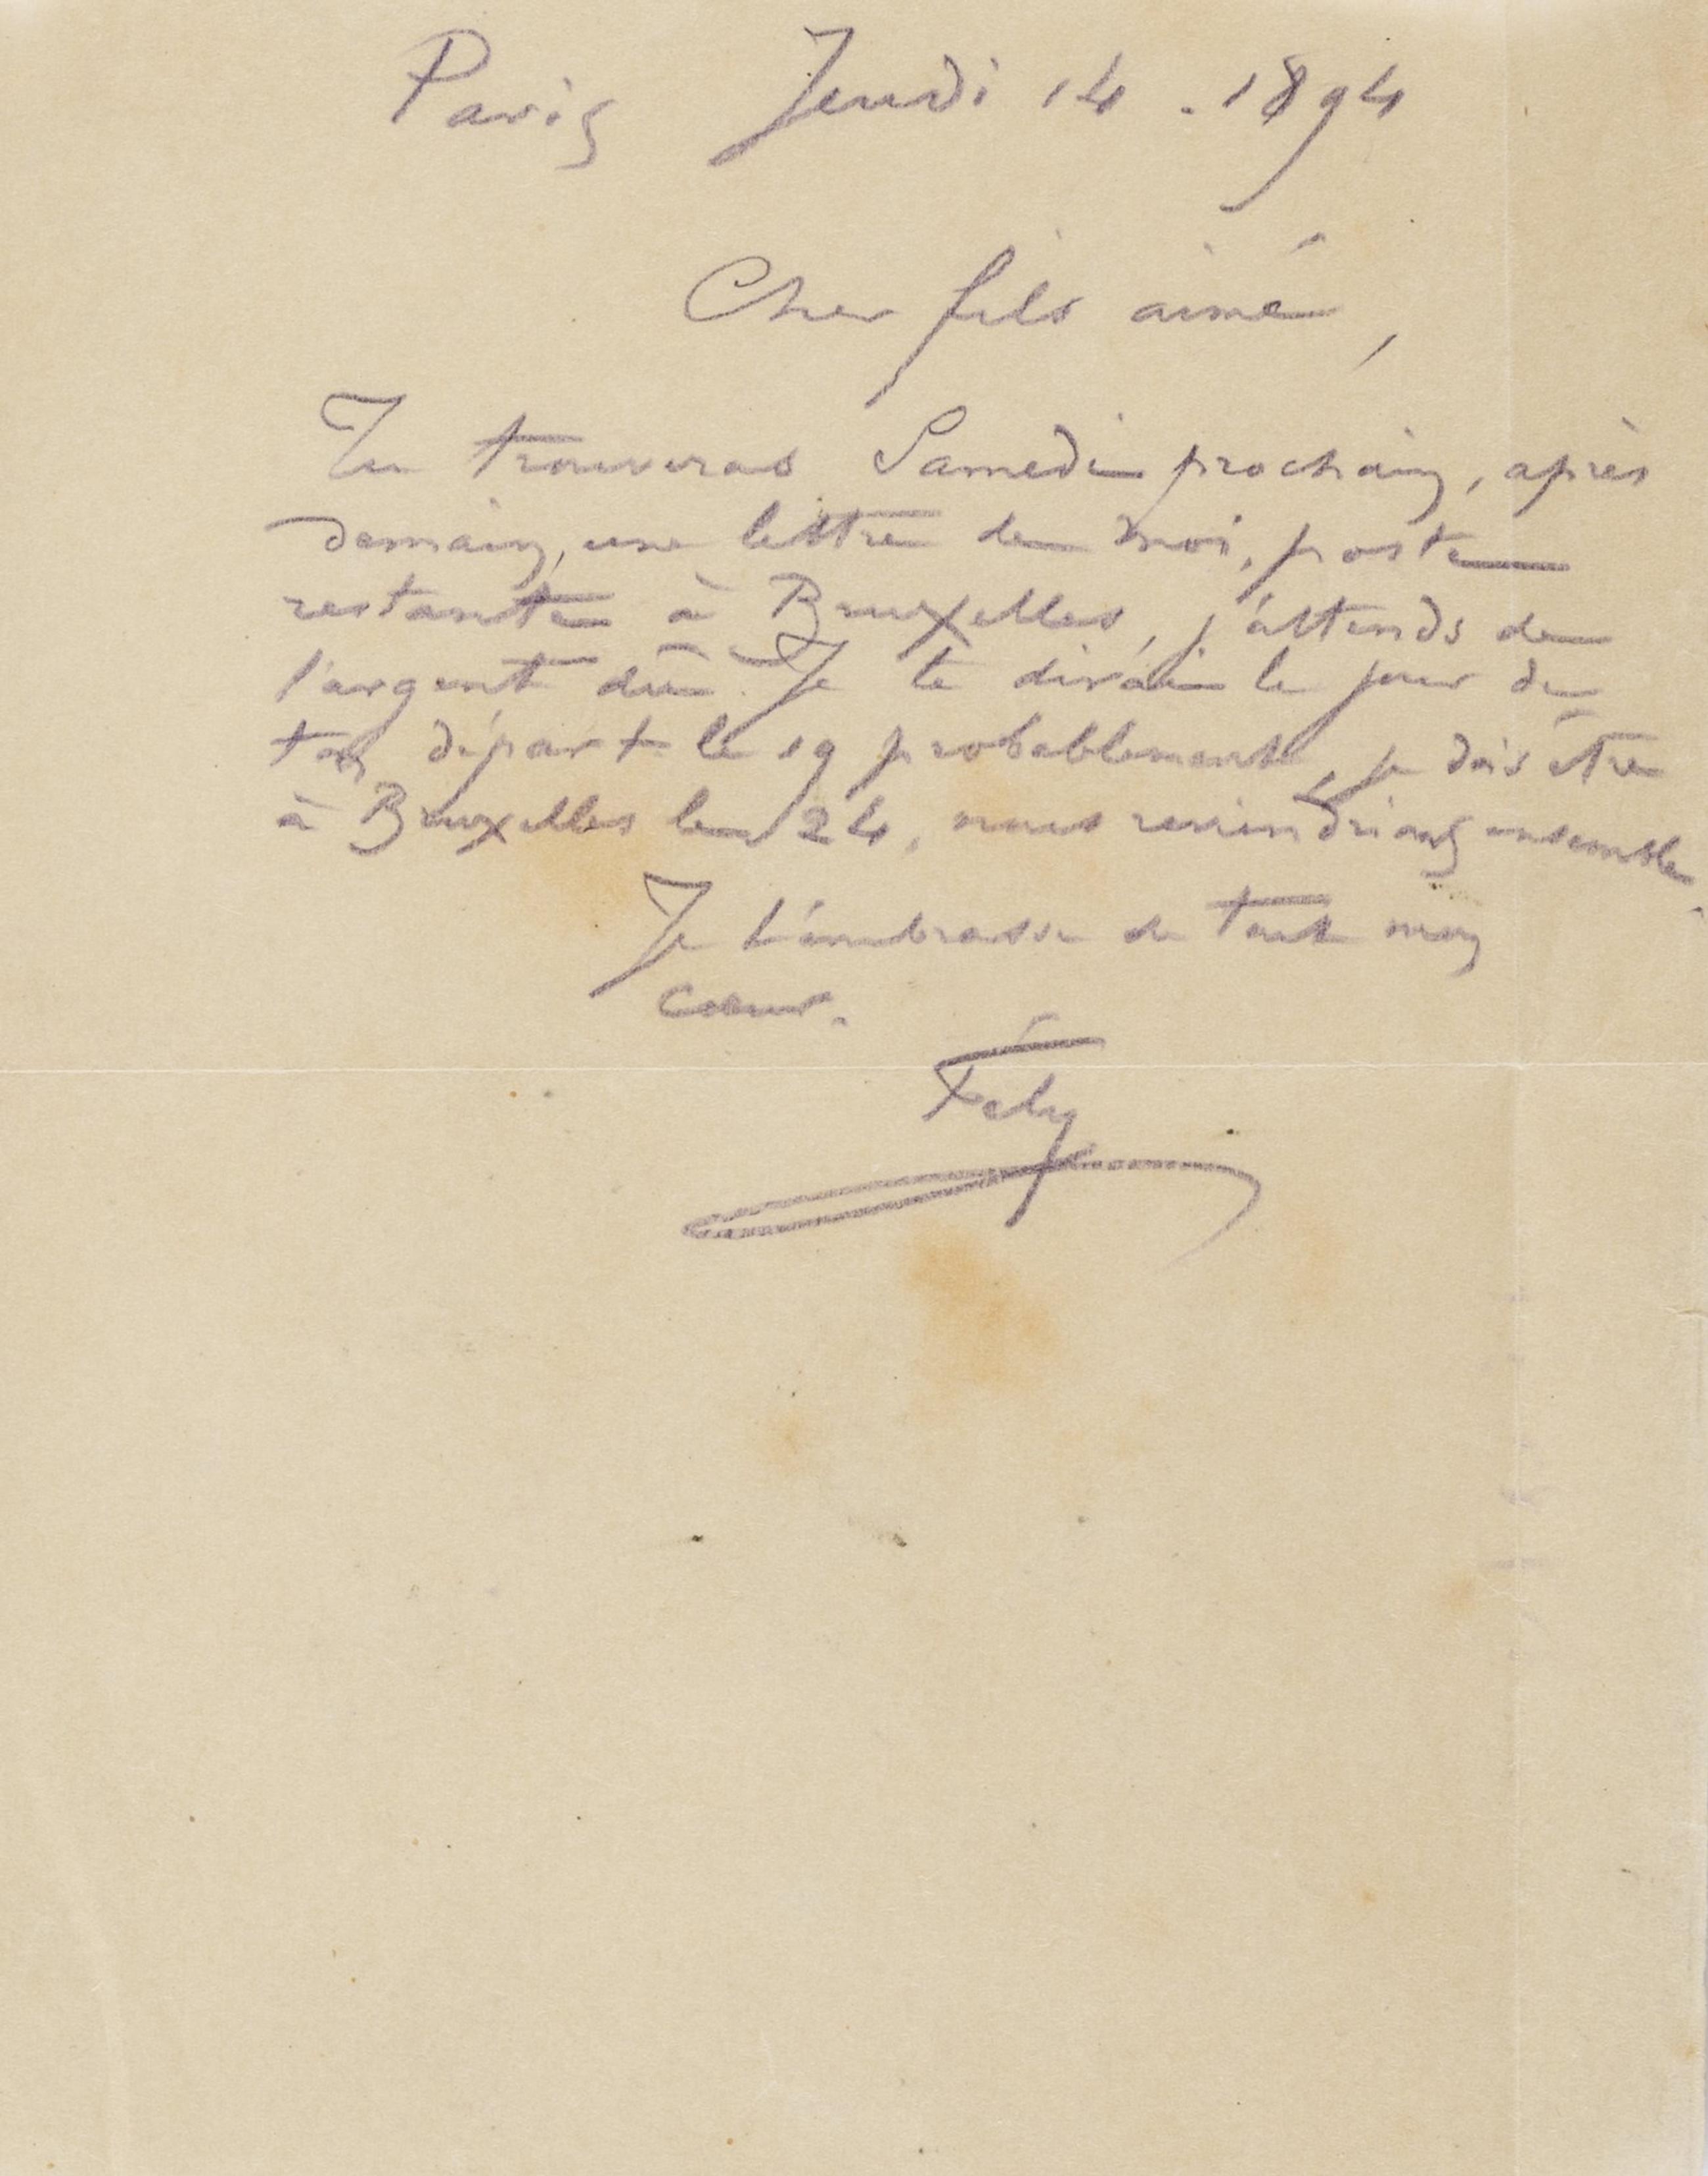 Paris Jeudi 14. 1894
Cher fils aimé,
Tu trouveras Samedi prochain, après
demain, une lettre de moi, poste
restante à Bruxelles, j'attends de
l'argent dû. Je te dirai le jour de
ton départ le 19 probablement, je dois être
à Bruxelles le 24, nous reviendrions ensemble.
Je t'embrasse de tout mon
coeur.
Fély